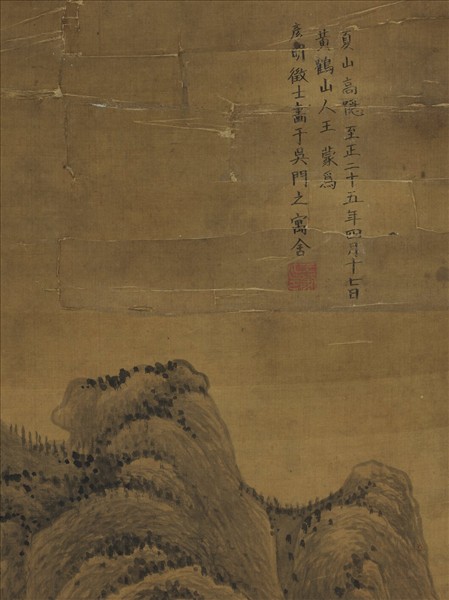 夏山高隱 至正二十五年四月十七日
黃鶴山人王蒙為
彥明徵士畫于吳門之寓舍